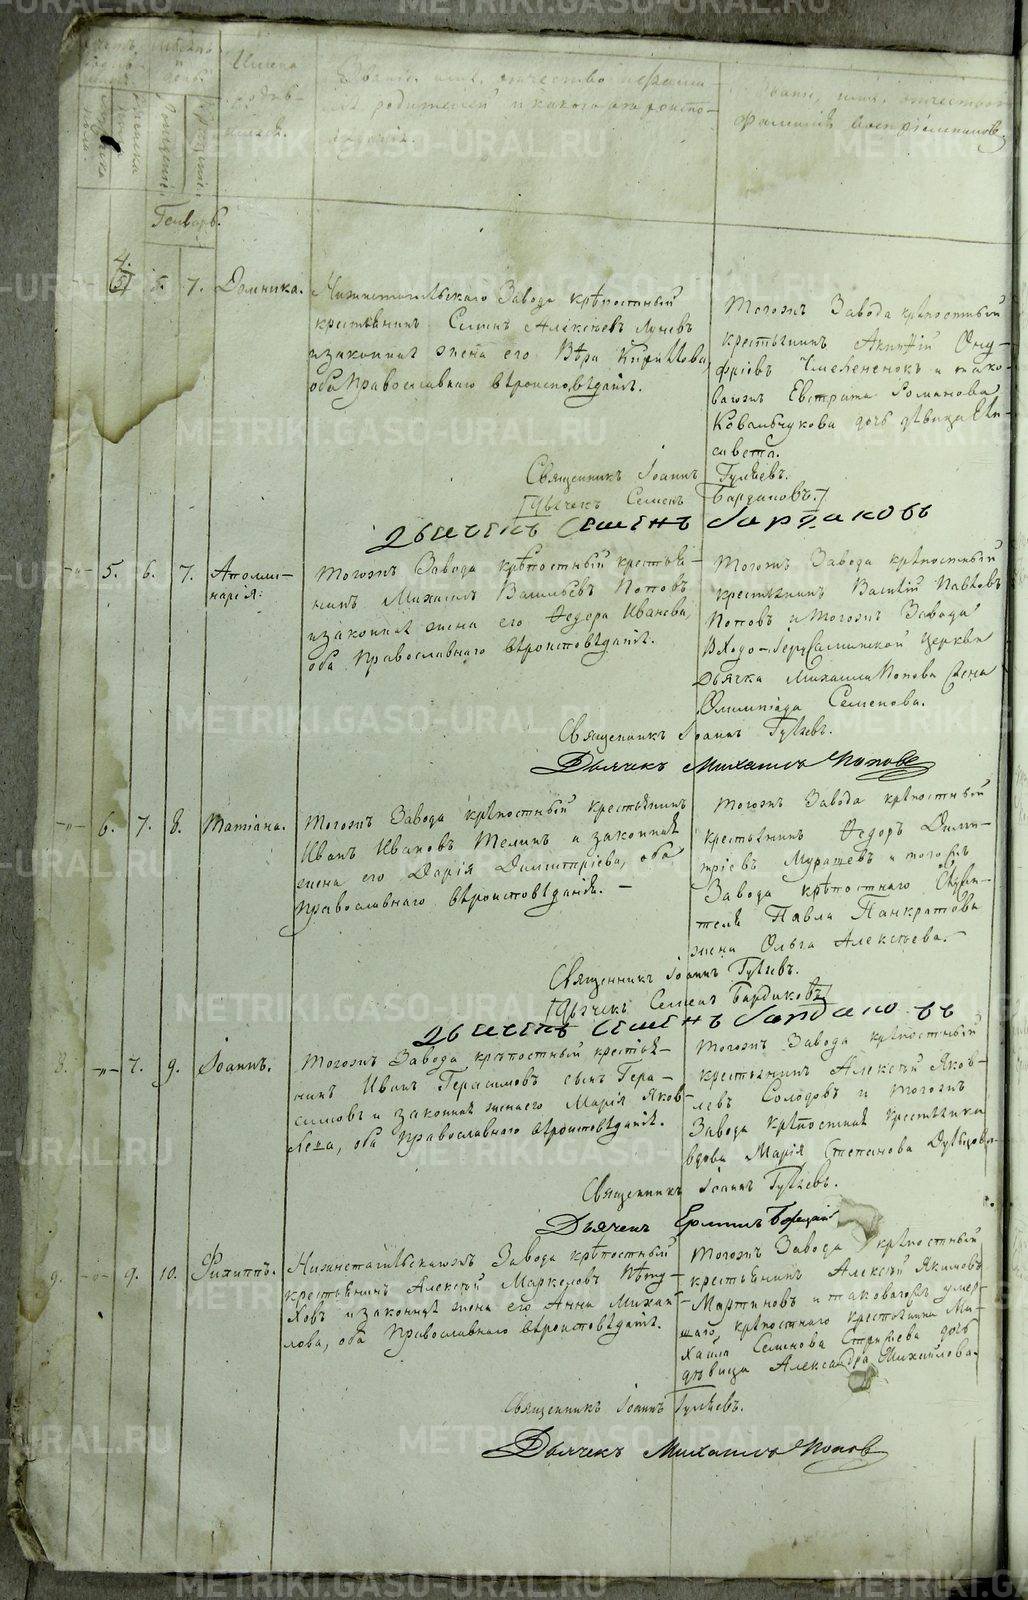 Имена родив-
шихся.
Званіе, имя, отчество и фами-
лія родителей и какого вѣроиспо-
вѣданія.
Званіе, имя, отчество и
фамилія воспріемниковъ.
Генварь.
4. 5. 7. Домника.
Нижнетагильскаго Завода крѣпостный
крестьянинъ Семенъ Алексѣевъ
и законная жена его Вѣра Кирилова,
оба Православнаго вѣроисповѣданія.
Тогожъ Завода крѣпостный
крестьянинъ Акинѳій Ону-
фріевъ и тако-
вагожъ Евстрата Романова
Ковальчукова дочь дѣвица Ели-
савета.
Священникъ Іоаннъ Гуляевъ.
Дьячекъ Семенъ Бардаковъ.
Дьячекъ Семенъ Бардаковъ
-"- 5. 6. 7. Аполли-
нарія.
Тогожъ Завода крѣпостный крестья-
нинъ Михаилъ Васильевъ Поповъ
и законная жена его Ѳедора Иванова,
оба Православнаго вѣроисповѣданія.
Тогожъ Завода крѣпостный
крестьянинъ Василій Павловъ
Поповъ и тогожъ Завода
Входо-Іерусалимской церкви
дьячка Михаила Попова жена
Олимпіада Семенова.
Священникъ Іоаннъ Гуляевъ.
Дьячекъ Михаилъ Поповъ
-"- 6. 7. 8. Татіана.
Тогожъ Завода крѣпостный крестьянинъ
Иванъ Ивановъ Телинъ и законная
жена его Дарія Димитріева, оба
Православнаго вѣроисповѣданія. -
Тогожъ Завода крѣпостный
крестьянинъ Ѳедоръ Дими-
тріевъ Мурашевъ и тогожъ
Завода крѣпостнаго Служи-
теля Павла Панкратова
жена Ольга Алексѣева. -
Священникъ Іоаннъ Гуляевъ.
Дьячекъ Семенъ Бардаковъ
Дьячекъ Семенъ Бардаковъ
8. -"- 7. 9. Іоаннъ.
Тогожъ Завода крѣпостный крестья-
нинъ Иванъ Герасимовъ сынъ Гера-
симовъ и законная жена его Марія Яков-
лева, оба Православнаго вѣроисповѣданія.
Тогожъ Завода крѣпостный
крестьянинъ Алексѣй Яков-
левъ Солодовъ и тогожъ
Завода крѣпостная крестьянка
вдова Марія Степанова
Священникъ Іоаннъ Гуляевъ.
Дьячекъ
9. -"- 9. 10. Филиппъ.
Нижнетагильскагожъ Завода крѣпостный
крестьянинъ Алексѣй Маркеловъ Пѣту-
ховъ и законная жена его Анна Михай-
лова, оба Православнаго вѣроисповѣданія.
Тогожъ Завода крѣпостный
крестьянинъ Алексѣй Якимовъ
Мартиновъ и таковагожъ умер-
шаго крѣпостнаго крестьянина Ми-
хаила Семенова дочь
дѣвица Александра Михайлова.
Священникъ Іоаннъ Гуляевъ.
Дьячекъ Михаилъ Поповъ
METRIKI.GASO-URAL.RU